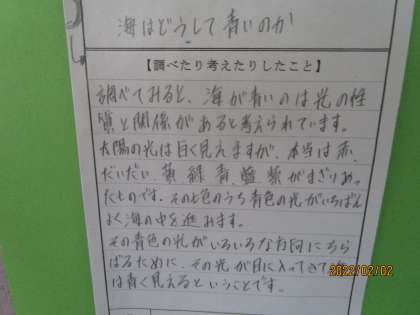 海はどうして青いのか
【調べたり考えたりしたこと】
調べてみると、海が青いのは光の性
質と関係があると考えられています。
太陽の光は白く見えますが、本当は赤、
だいだい、黄、緑、青、藍、紫がまざりあっ
たものです。その七色のうち青色の光がいちばん
よく海の中を進みます。
その青色の光がいろいろな方向にちら
ばるために、その光が目に入ってきて
は青く見えるということです。
2022/02/02